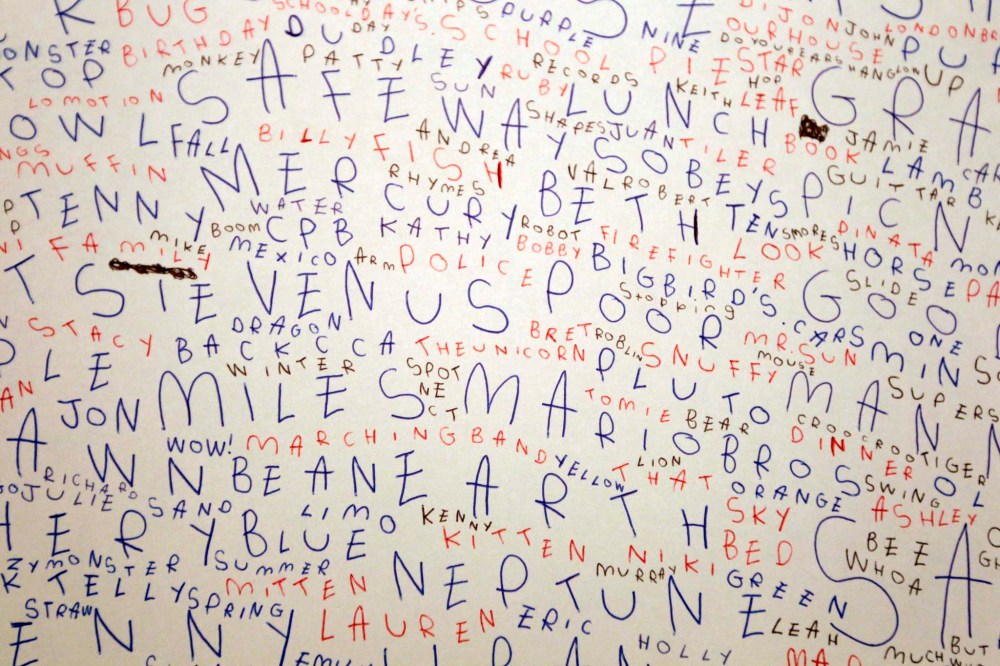 BUG SCHOOL DAYS PURPLE DIJON JOHN LONDON
BIRTHDAY DUDLEY DAY SCHOOL PIE NINE OUR HOUSE
MONKEY PATTY RECORDS STAR DO YOUR EARS HANG LOW UP
TOP SAFEWAY SUN RUBY LUNCH KEITH HOP LEAF
LOMOTION SHAPES JUAN TILER BOOK JAMIE
OWL FALL BILLY FISH ANDREA SOBEYS LAMB
MUFFIN MERCURY RHYMES VAL ROBERT GUITTAR
TENNY WATER BETH TEN PICN
BOOM CPB KATHY ROBOT FIREFIGHTER SMORES PINATA
FAMILY MIKE MEXICO ARM POLICE BOBBY LOOK HORSE
STEVE VENUS BIGBIRD'S SLIDE
STACY DRAGON POOR STOPPING GOO
BACK CCA THE UNICORN BRET ROBLIN SNUFFY MR.SUN CARS ONE
WINTER SPOT PLUTO MOUSE MIN
JON MILES NE CT MARIO BROS TOMIE BEAR MAN SUPER
WOW! MARCHING BAND DINNER CROOCROO TIGER
DAWN BEANE EARTH YELLOW LION THAT SWING
RICHARD JULIE SAND LIMO ORANGE ASHLEY
HERY BLUE KENNY KITTEN NIKI SKY BED BEE
ZYMONSTER SUMMER MURRAY WHOA
TELLY SPRING MITTEN NEPTUNE GREEN SA
STRAW LAUREN ERIC LEAH
ENNY HOLLY MUCH BUT